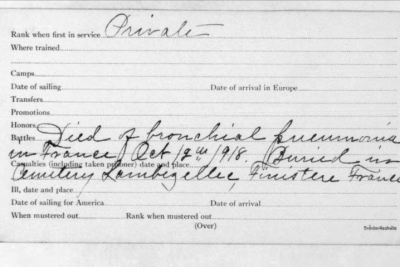 Rank when first in service Private
Where trained
Camps
Date of sailing Date of arrival in Europe
Transfers
Promotions
Honors
Battles Died of bronchial pneumonia
in France Oct 12th 1918. (Buried in
Casualties (including taken prisoner) date and place
Cemetery Lambezellec, Finistere France
Ill, date and place
Date of sailing for America Date of arrival
When mustered out Rank when mustered out
(Over)